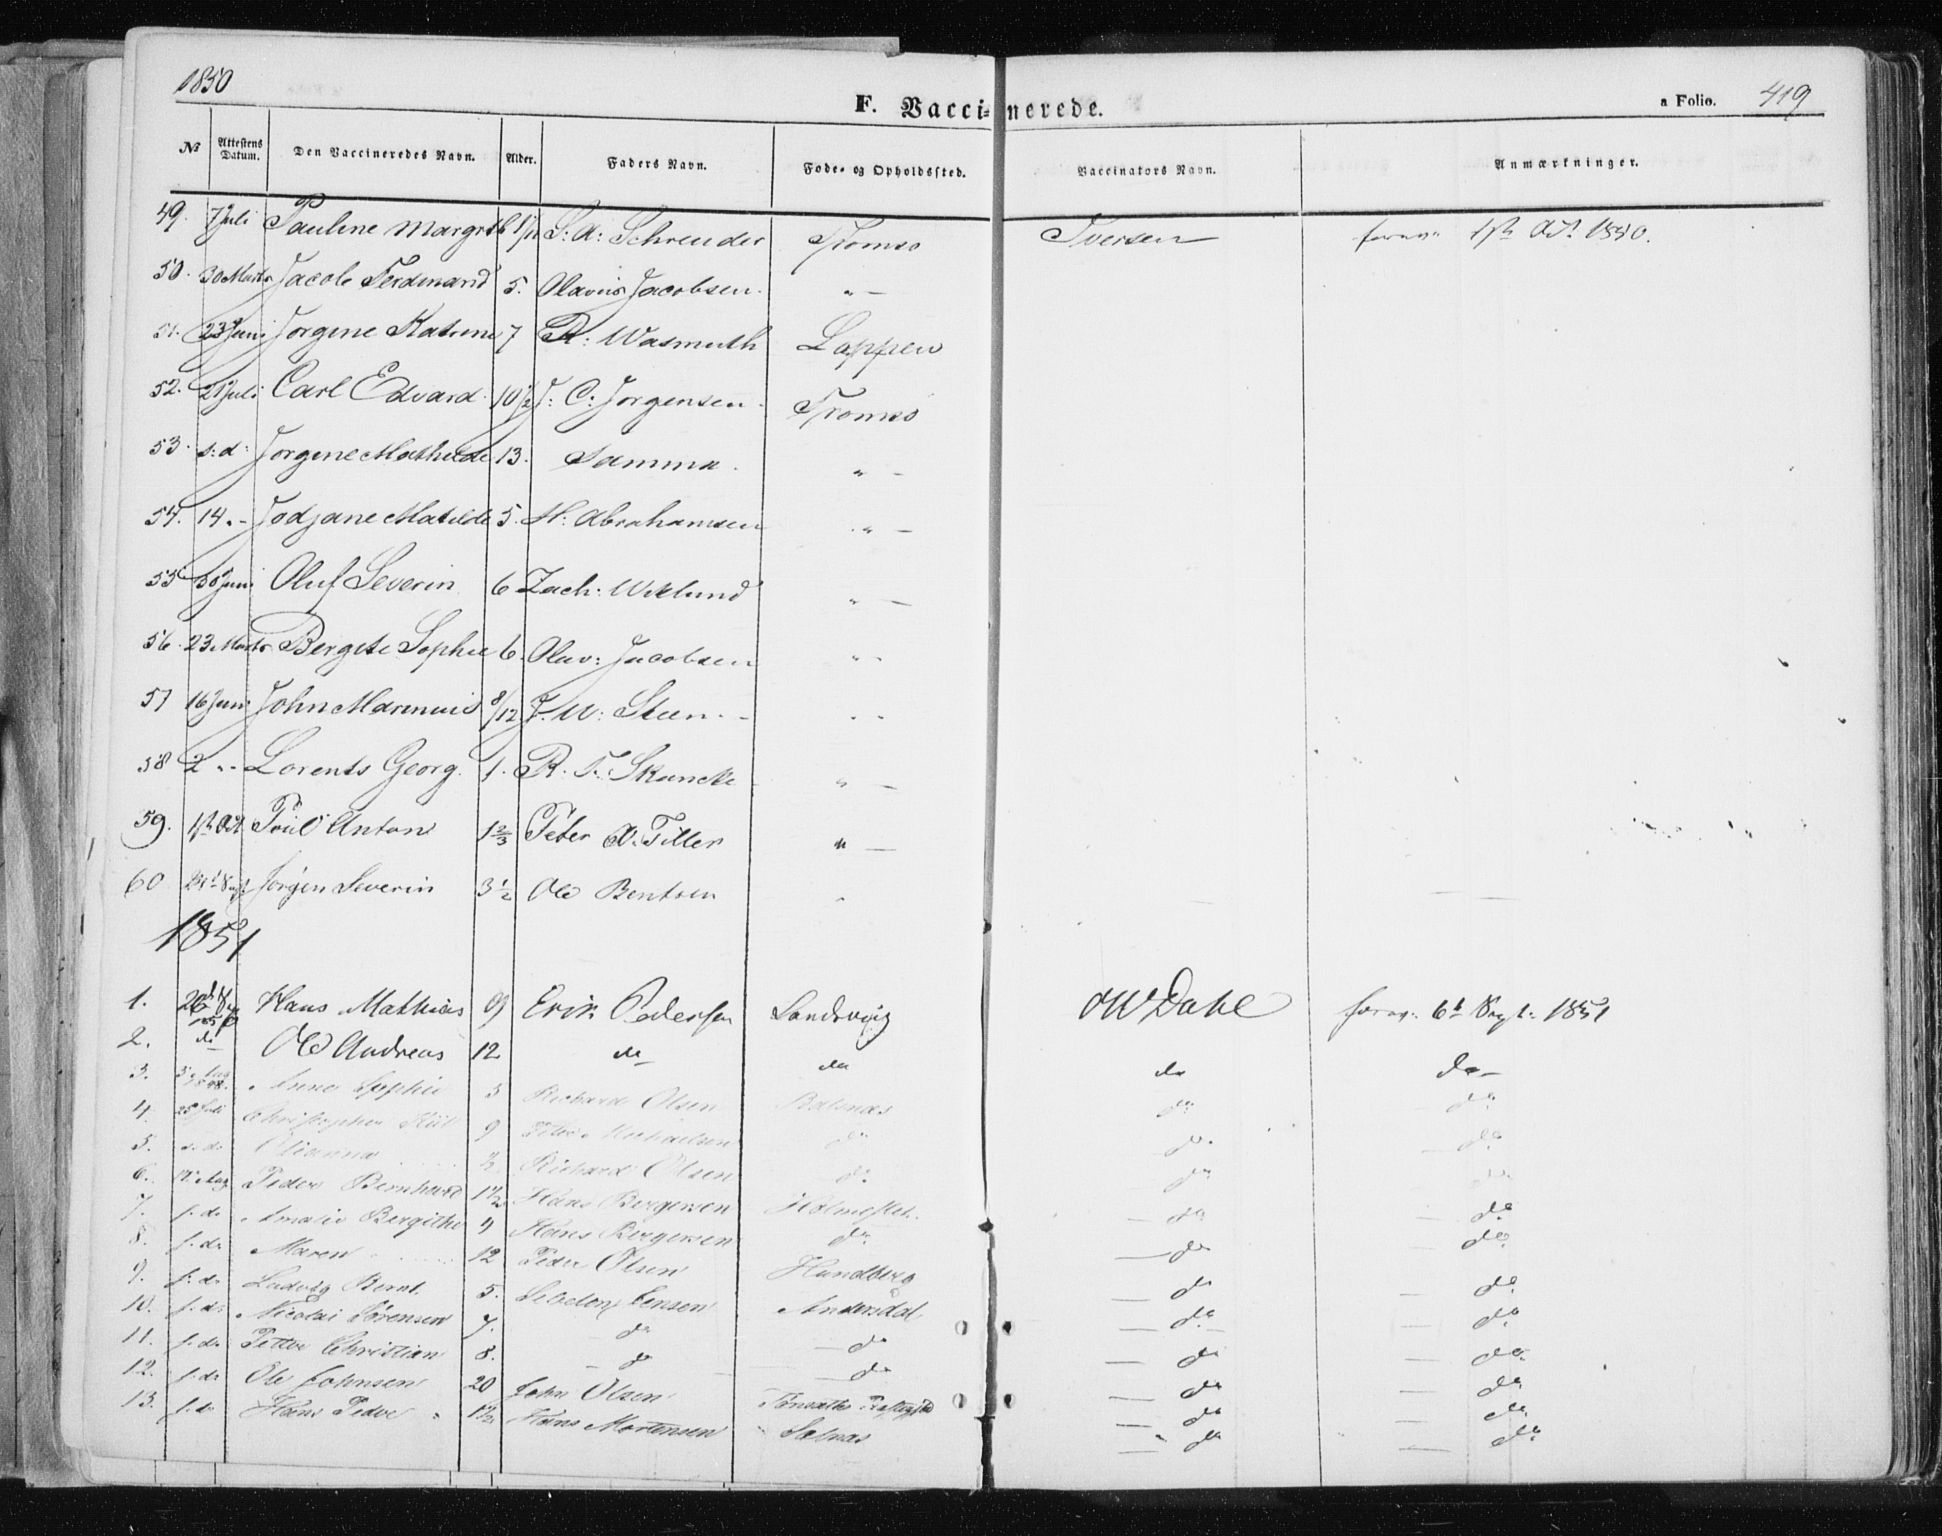 1850
F. Vaccinerede.
a Folio. 419
No Attestens Datum. Den Vaccineredes Navn. Alder. Faders Navn. Føde- og Opholdssted. Vaccinators Navn. Anmærkninger.
49. 7 Juli Pauline Margreth 1/11 S: A: Schreuder Tromsø Iversen 1ste Oct. 1850.
50. 30 Marts Jacob Ferdinand 5. Olavus Jacobsen. " —
51. 23 Juni Jørgine Katrine 7 R: Wasmuth Loppen
52. 21 Juli Carl Edvard 10 1/2 J: C: Jørgensen. Tromsø
53. s: d: Jørgine Mathilde 13. Samma. " —
54. 14 " - Jodjane Matilde 5. H: Abrahamsen " —
55 30 Juni Oluf Severin 6 Zach: Wiklund " —
56. 23 Marts Bergete Sophie 6. Olav: Jacobsen " -
57 16 Juni John Marenius 8/12 J. W: Steen - " -
58 2 " - Lorents Georg. 1. R. F. Skancke " —
59. 1ste Oct Poul Anton 1 2/3 Peter A. Tiller " —
60 24de Sept Jørgen Severin 3 1/2 Ole Bentsen "
1851
1. Hans Mathias 9 Erik Pedersen Sandsvig OW Dahl 6te Sept. 1851
2. do Ole Andreas 12 do do do do —
3. 3. Aug 1848. Anne Sophie 5 Richard Olsen Balsnæs do do
4. 25 Juli Christopher 9 Peter Michaelsen do do do
5. s. d. Olianna Richard Olsen do do do
6. 12. Aug Peder Bernhard 1 1/2 Hans Bergersen — do — do
7. s. d. Amalie Bergithe 4 Hans Bergersen do — do do
8. s. d. Maren 12 Peder Olsen Hundberg — do — do
9. s. d. Ludvig Bernt. 5. Jensen Andersdal — do — do
10. s. d. Nicolai Sørensen 7. do — do — do — do
11. s. d. Petter Christian 8. — do — do — do — do
12. s. d. Ole Johnsen 20 John Olsen — do do
13. s. d. Hans Peder 1 1/2 Hans Mortensen — do — do